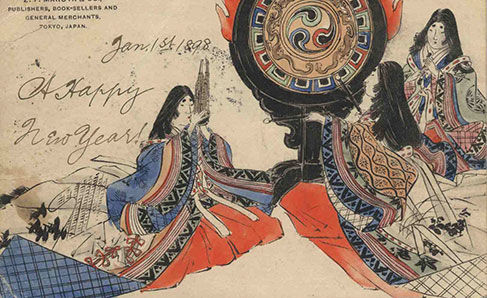 PUBLISHERS, BOOK-SELLERS AND
GENERAL MERCHANTS,
TOKYO, JAPAN.
Jan. 1st 1898
A Happy
New Year!